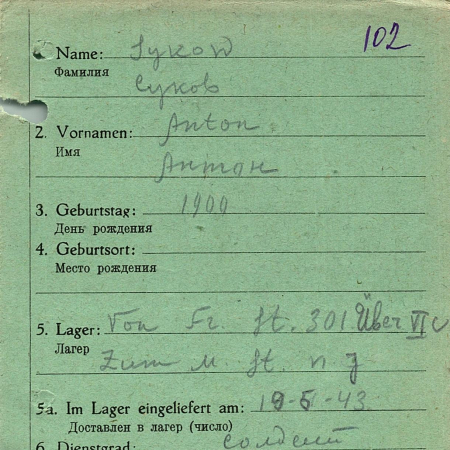 102
Name: Sykow
Фамилия
Суков
2. Vornamen: Anton
Имя
Антон
3. Geburtstag: 1900
День рождения
4. Geburtsort:
Место рождения
5. Lager: Von Fr. St. 301 Über VI C
Лагер
Zum M. St. n J
5a. Im Lager eingeliefert am: 19-5-43
Доставлен в лагер (число)
6. Dienstgrad: солдат